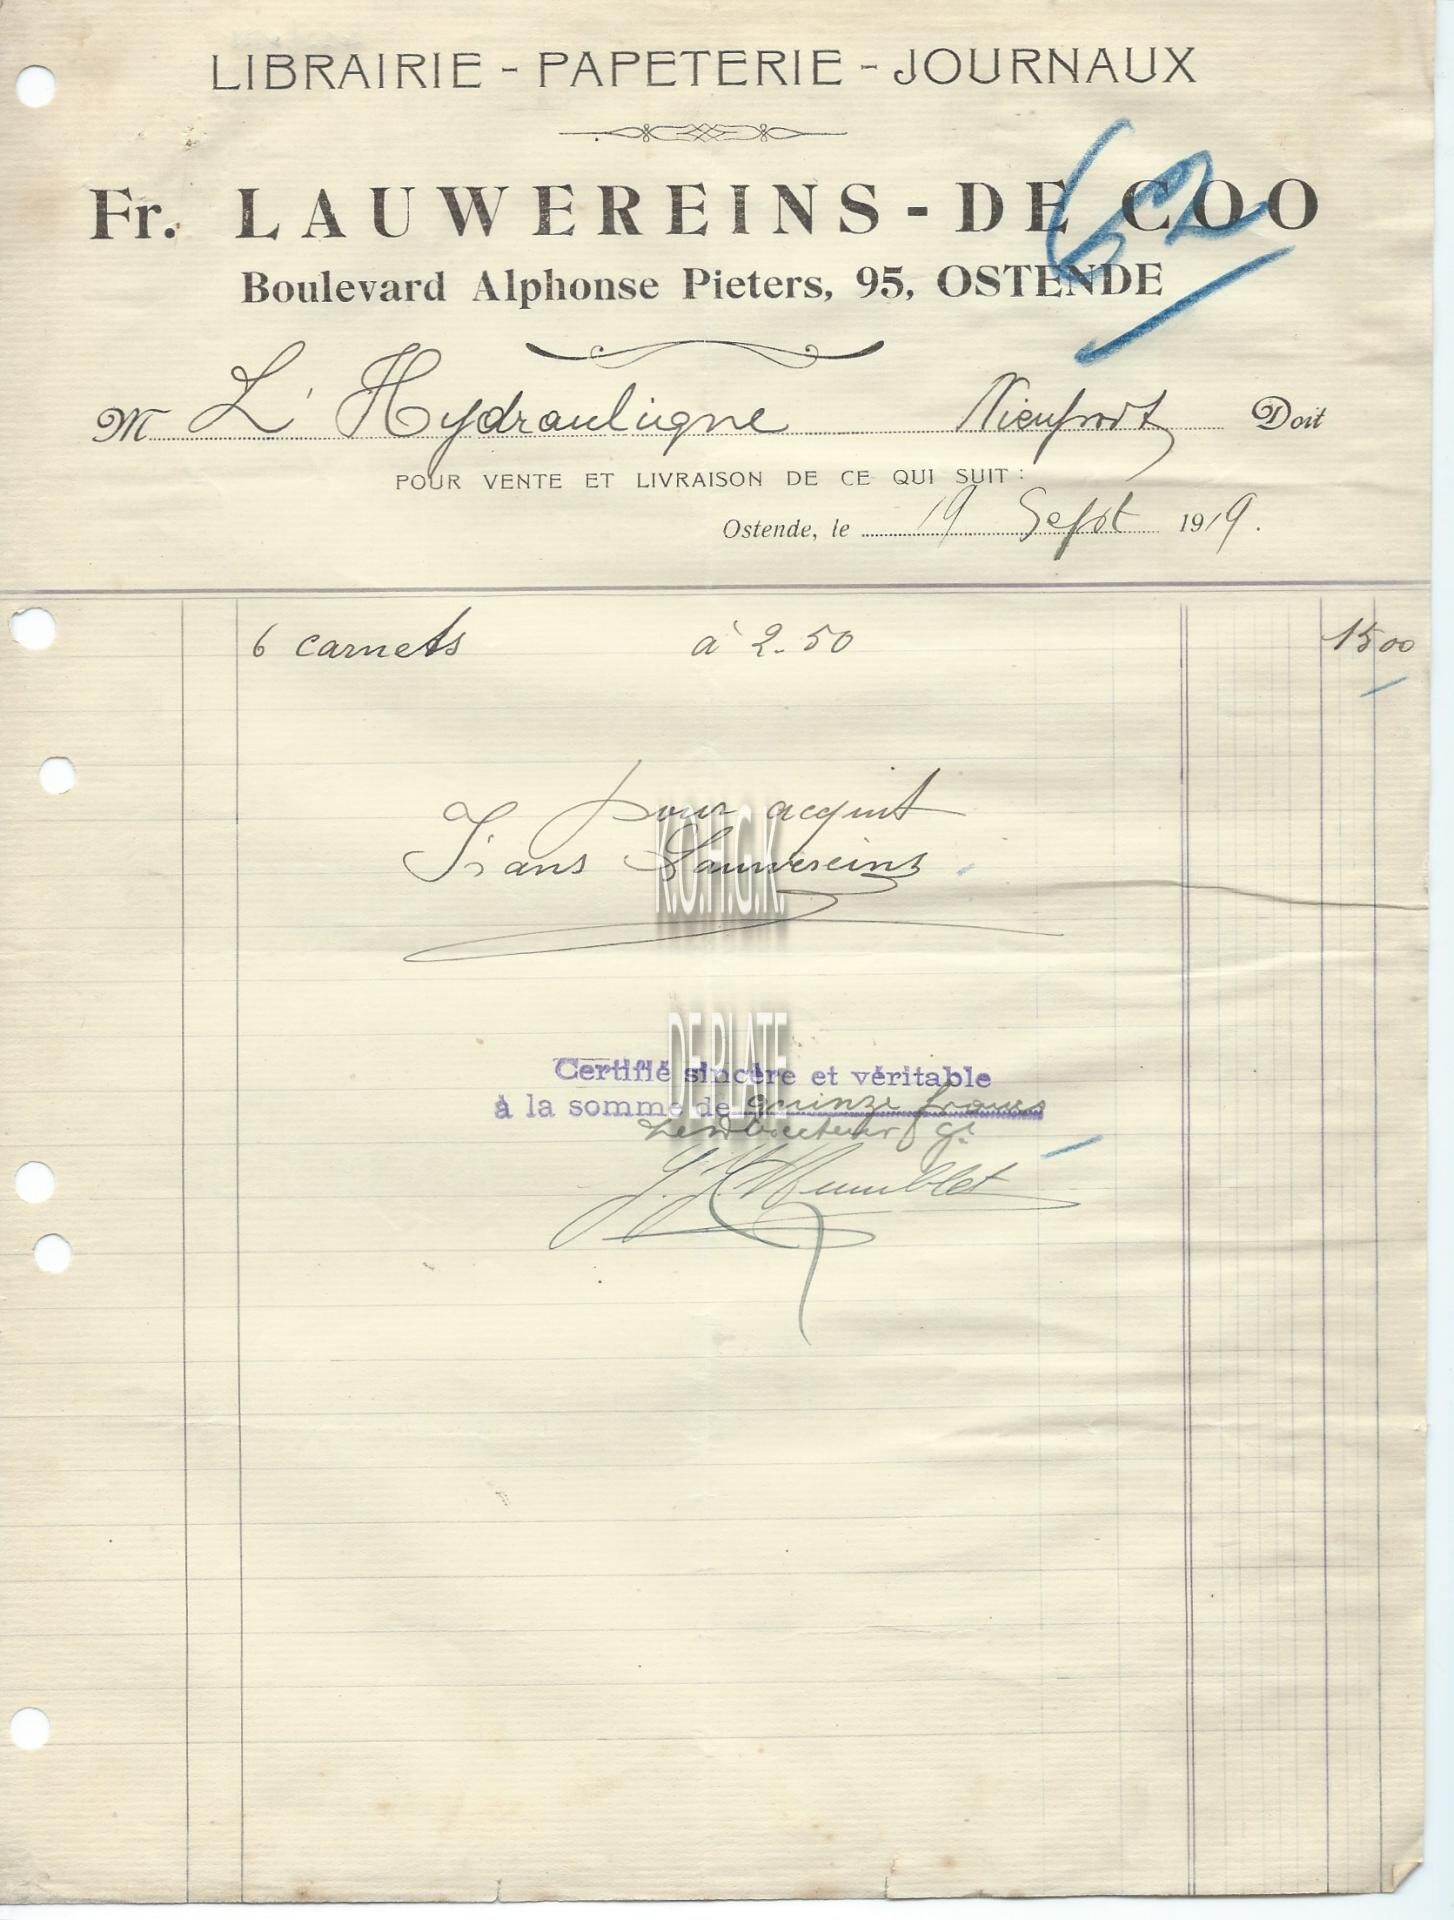 LIBRAIRIE - PAPETERIE - JOURNAUX
Fr. LAUWEREINS - DE COO
Boulevard Alphonse Pieters, 95, OSTENDE
M L'Hydraulique Nieuport Doit
POUR VENTE ET LIVRAISON DE CE QUI SUIT :
Ostende, le 19 Sept 1919.
6 carnets à 2.50 15 00
pour acquit
Frans Lauwereins
K.O.H.G.K.
DE PLATE
Certifié sincère et véritable
à la somme de quinze francs
Le Directeur gt
J. J. Humblet